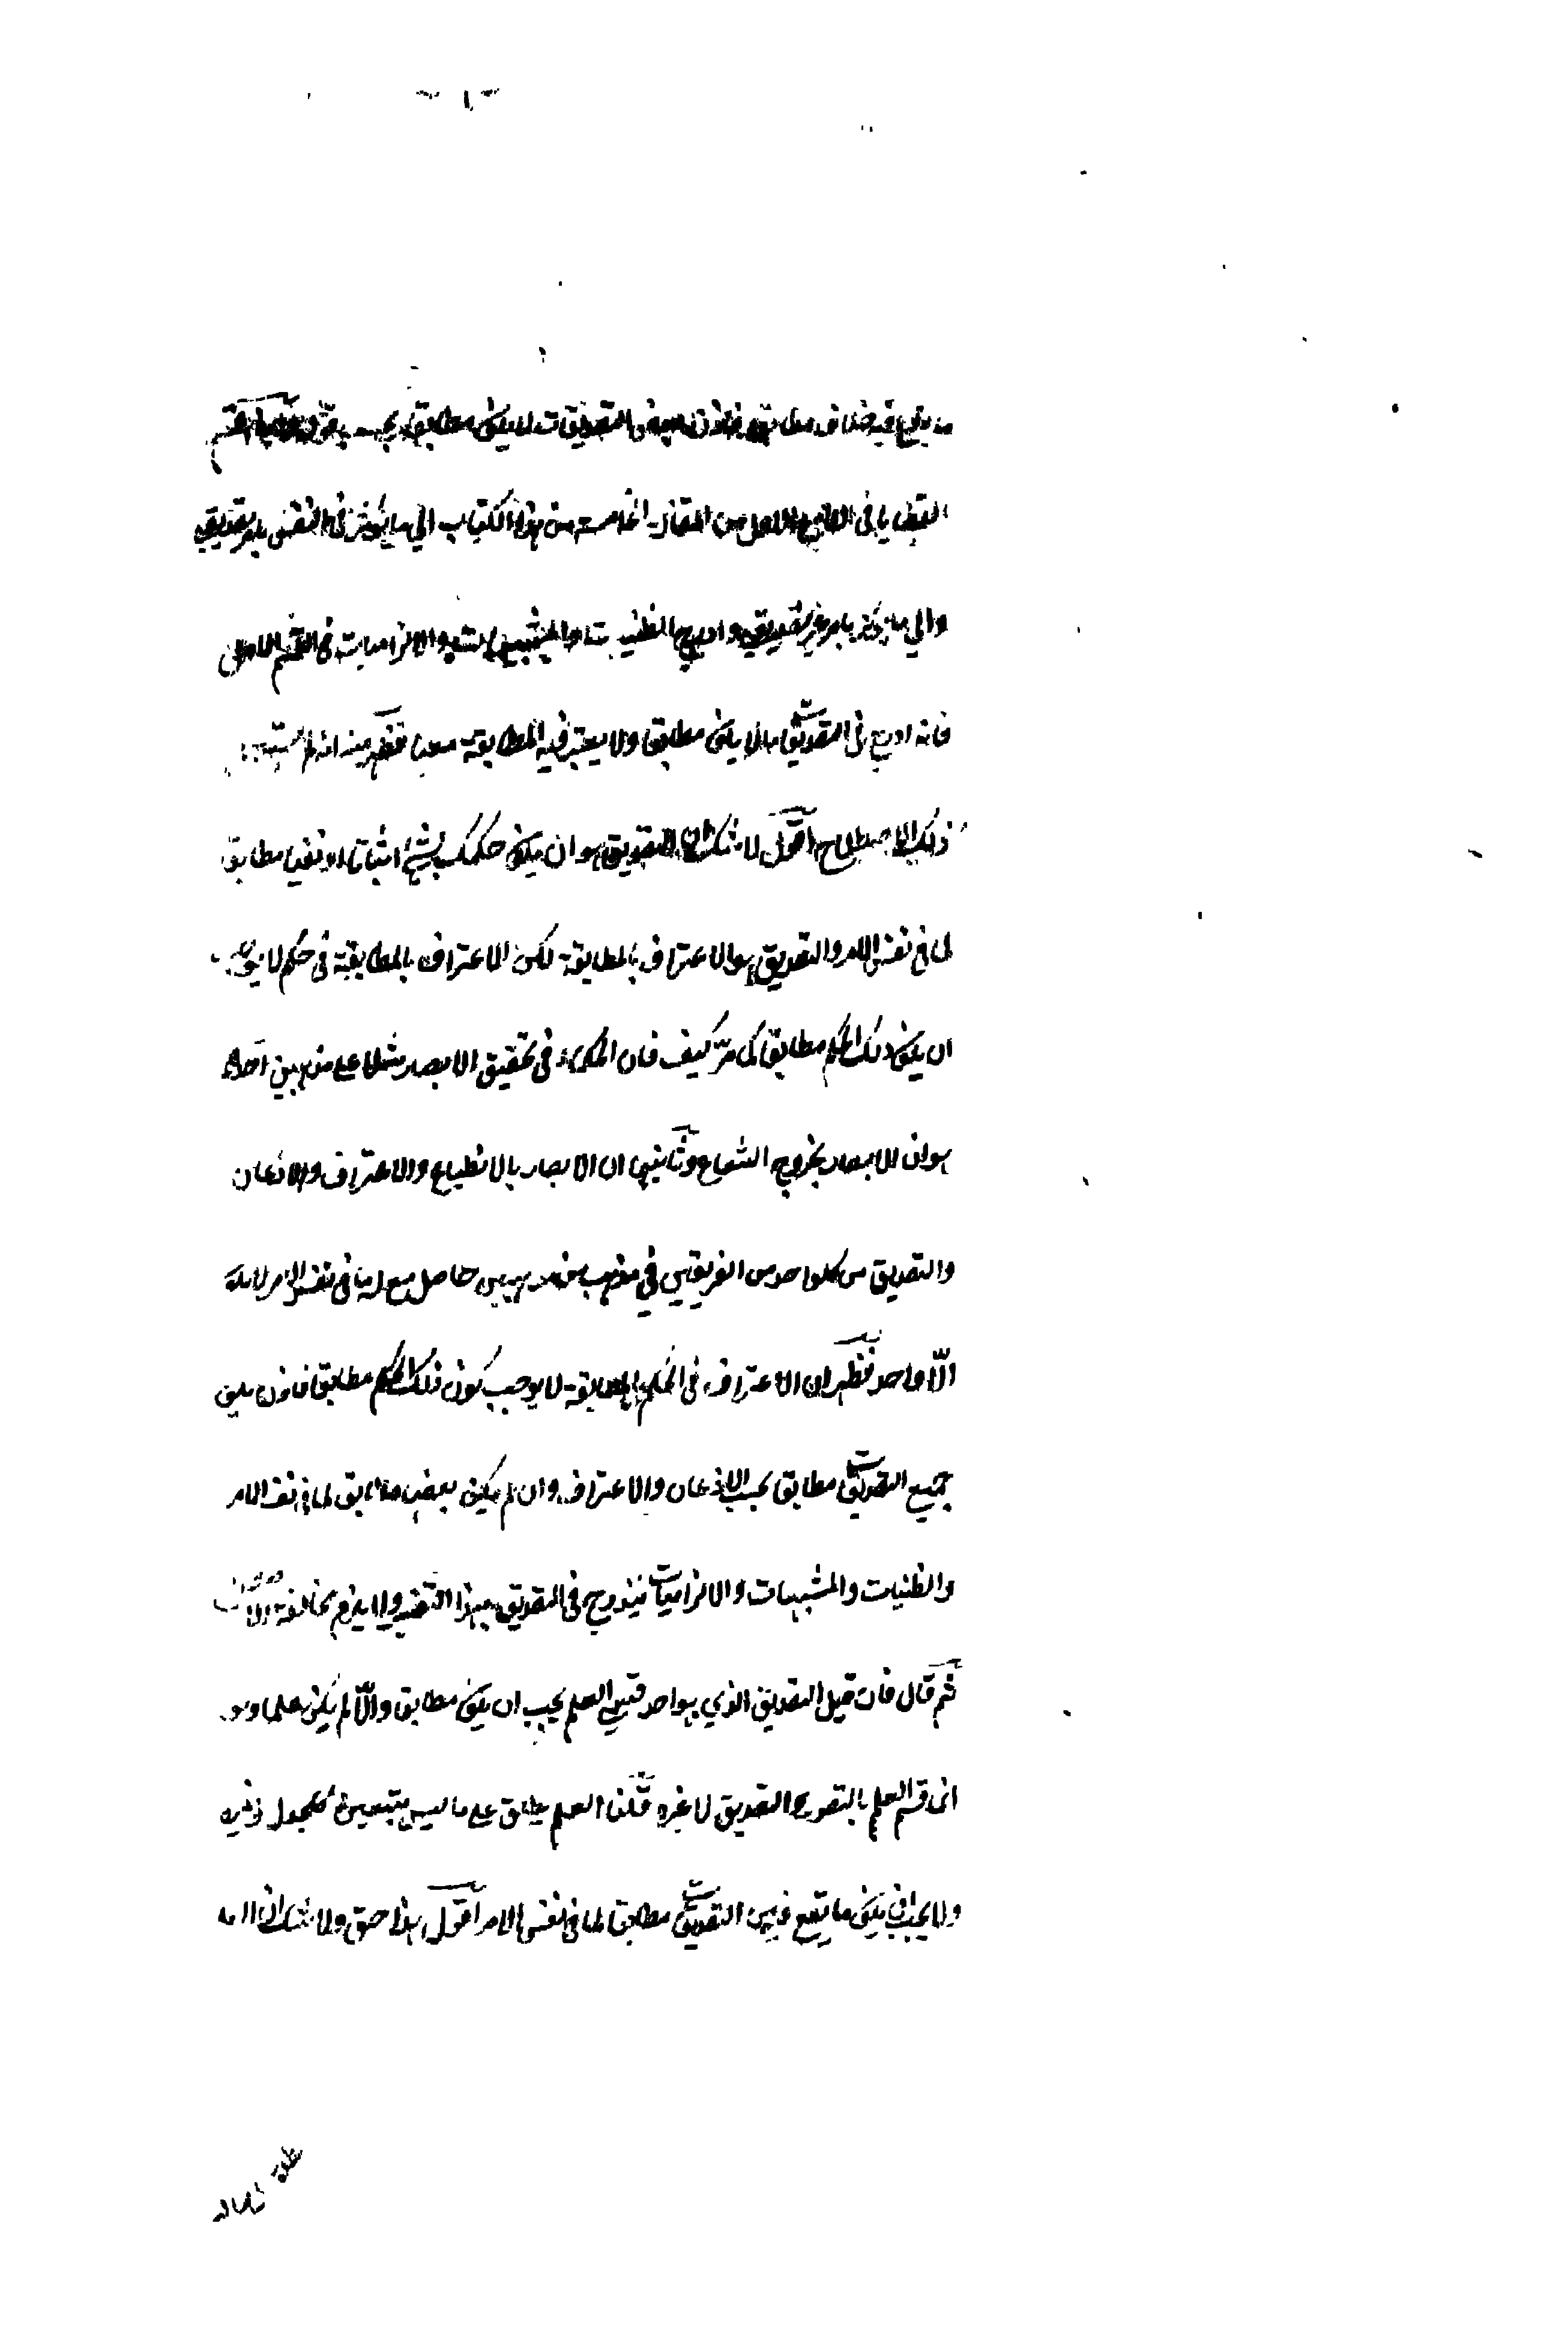 فيه خلاف مطابق فاذن بعض التصديقات لا يكون مطابقا
القضايا في المقالة الخامسة من هذا الكتاب الي ما يؤثر في النفس بامر تصديقي
والي ما يؤثر بامر غير تصديقي وادرج الظنيات والمشبهات والالزاميات في القسم الاول
فانه ادرج في التصديقات ما لا يكون مطابقا ولا يعتبر فيه المطابقة معنا فظهر منه انه لم
ذلك الاصطلاح اقول لا شك ان التصديق هو ان يكون حكمك بشئ اثباتا او نفيا مطابقا
لما في نفس الامر والتصديق هو الاعتراف بالمطابقة لكن الاعتراف بالمطابقة في حكم لا يوجب
ان يكون ذلك الحكم مطابقا كما مر كيف فان الحكماء في تحقيق الابصار مثلا علي مذهبين احدهما
هو ان الابصار بخروج الشعاع وثانيهما ان الابصار بالانطباع والاعتراف والاذعان
والتصديق من كلواحد من الفريقين في مذهب من مذهبين حاصل مع ان ما في نفس الامر
الّا واحد فظهر ان الاعتراف في الحكم بالمطابقة لا يوجب كون ذلك الحكم مطابقا فاذن يكون
جميع التصديقات مطابقا بحسب الاذعان والاعتراف وان لم يكن بعضها مطابق لما في نفس الامر
والظنيات والمشبهات والالزاميات يندرج في التصديق بهذا التفسير ولا يلزم مخالفة
ثم قال فان قيل التصديق الذي هو احد قسمي العلم يجب ان يكون مطابقا والّا لم يكن علما وهو
انما قسم العلم بالتصور والتصديق لا غيره قلنا العلم يطلق علي ما ليس
ولا يجب ان يكون ما يقع فيه من التصديقات مطابقا لما في نفس الامر اقول هذا حق ولا شك ان